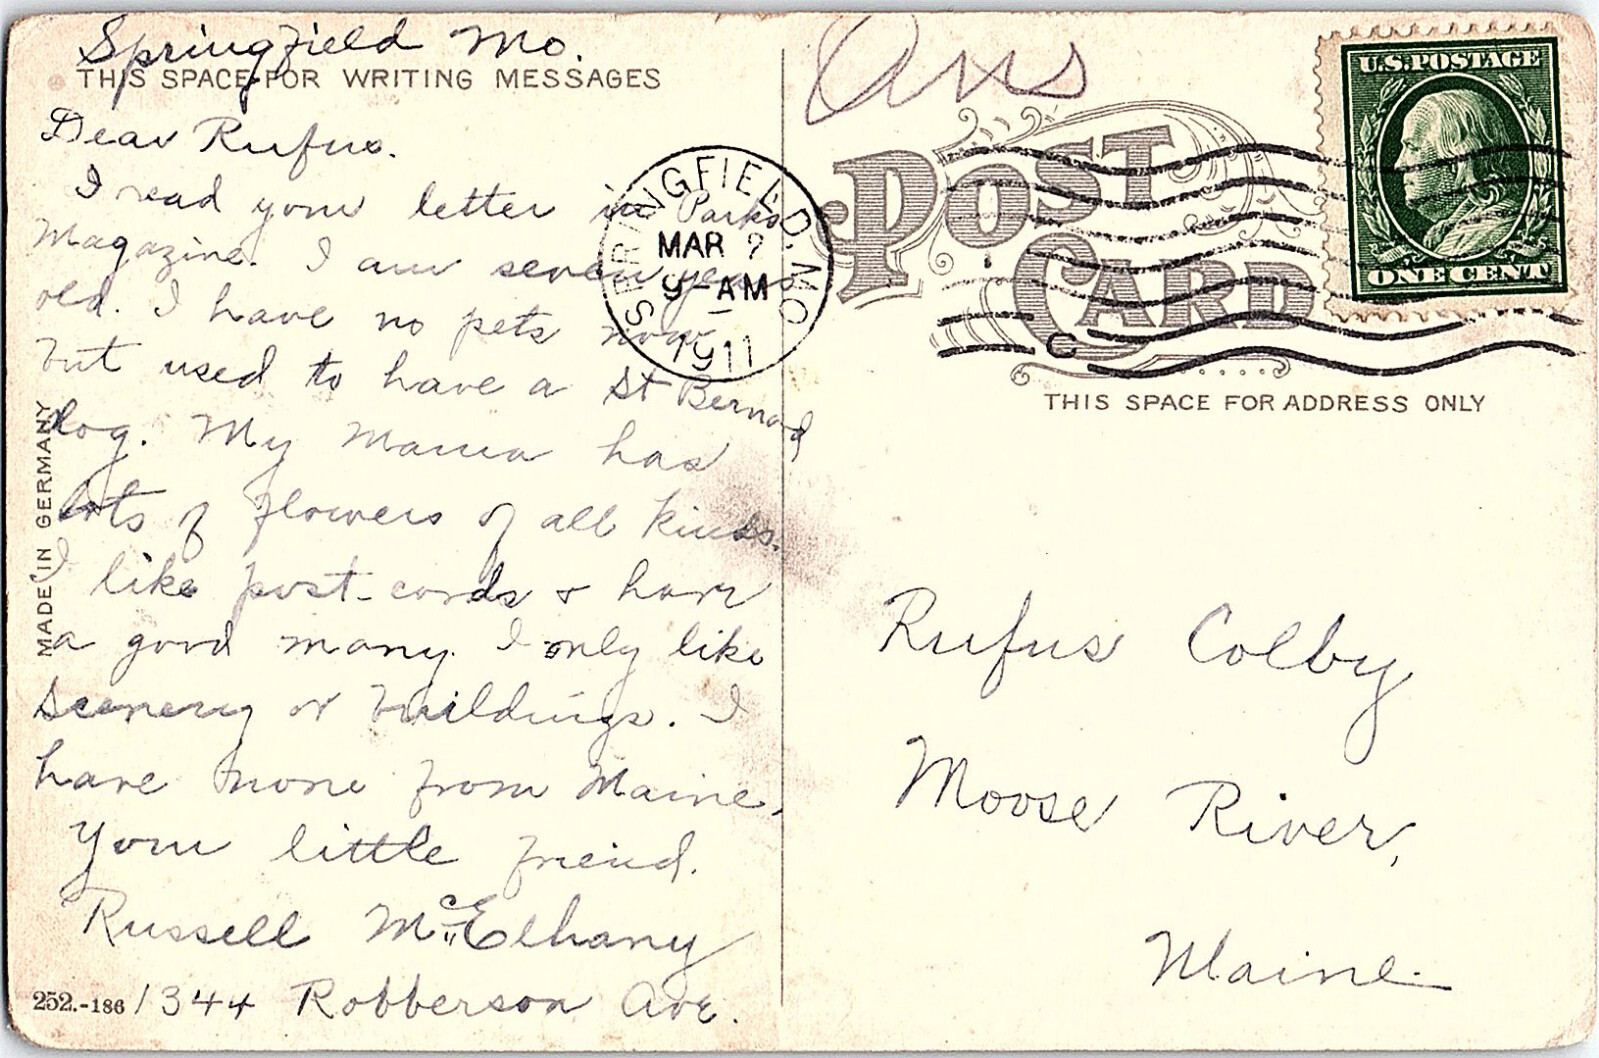 Springfield Mo.
THIS SPACE FOR WRITING MESSAGES
Dear Rufus.
I read your letter in Parks
Magazine. I am seven years
old. I have no pets now
but used to have a St Bernard
dog. My Mama has
lots of flowers of all kinds.
I like post-cards & have
a good many. I only like
Scenery or buildings. I
have none from Maine.
Your little friend.
Russell McElhany
1344 Robberson Ave.
252.-186
MADE IN GERMANY
Ans
POST
CARD
SPRINGFIELD, MO
MAR
9-AM
1911
U.S. POSTAGE
ONE CENT
THIS SPACE FOR ADDRESS ONLY
Rufus Colby
Moose River,
Maine.